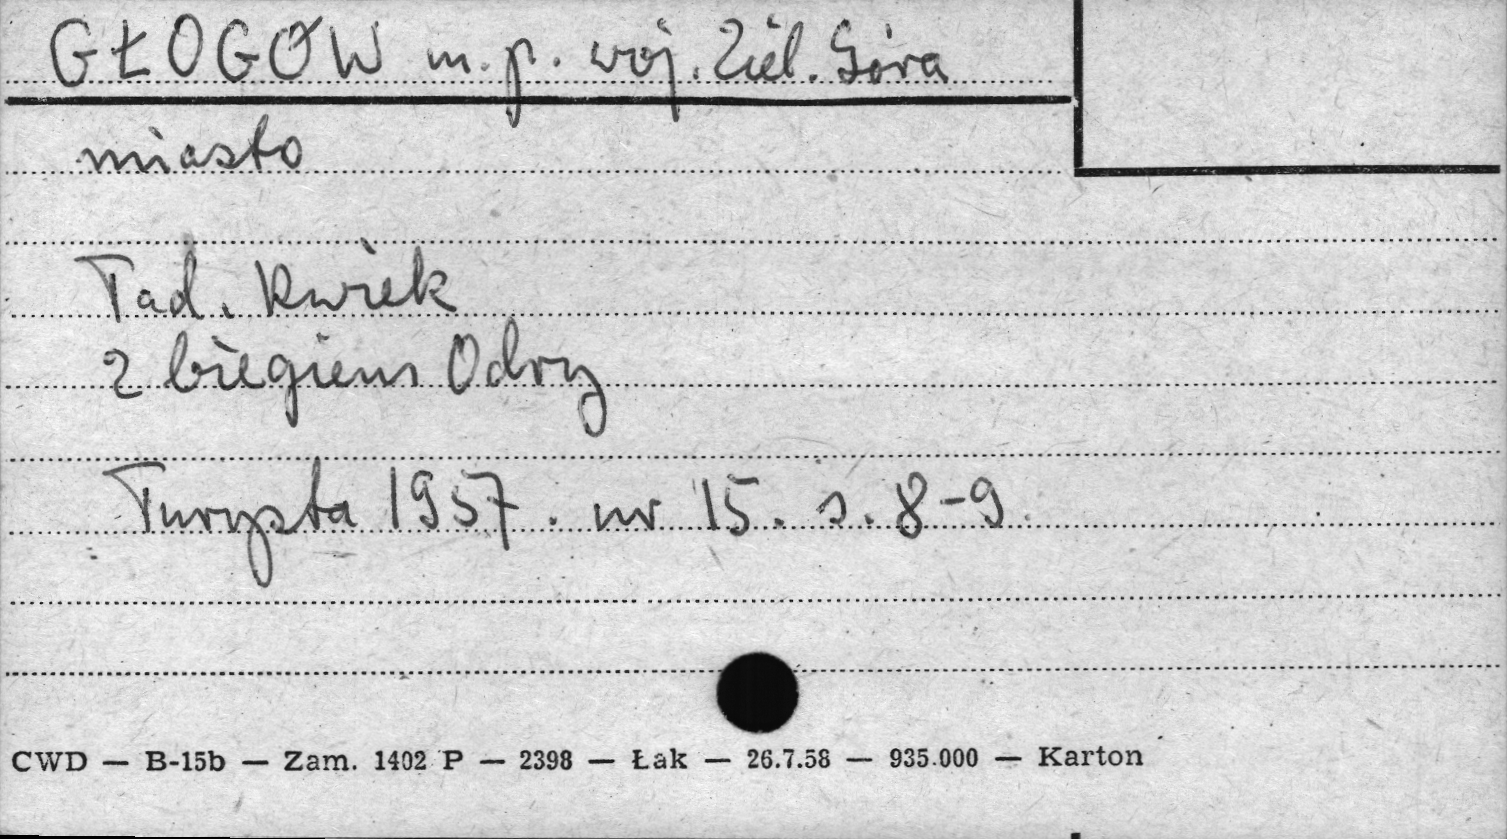 GŁOGÓW m. p. woj. Ziel. Góra
miasto
Tad. Kwiek
Z biegiem Odry
Turysta 1957. nr 15. s. 8-9.
CWD — B-15b — Zam. 1402 P — 2398 — Łak — 26.7.58 — 935.000 — Karton